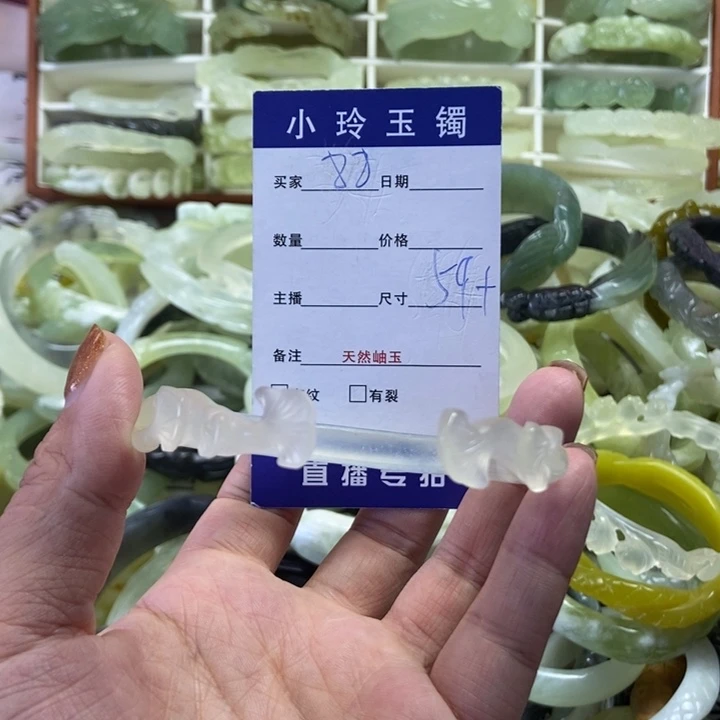 小玲玉镯
买家 88 日期
数量 价格
主播 尺寸 59+
备注 天然岫玉
纹 有裂
直播专拍